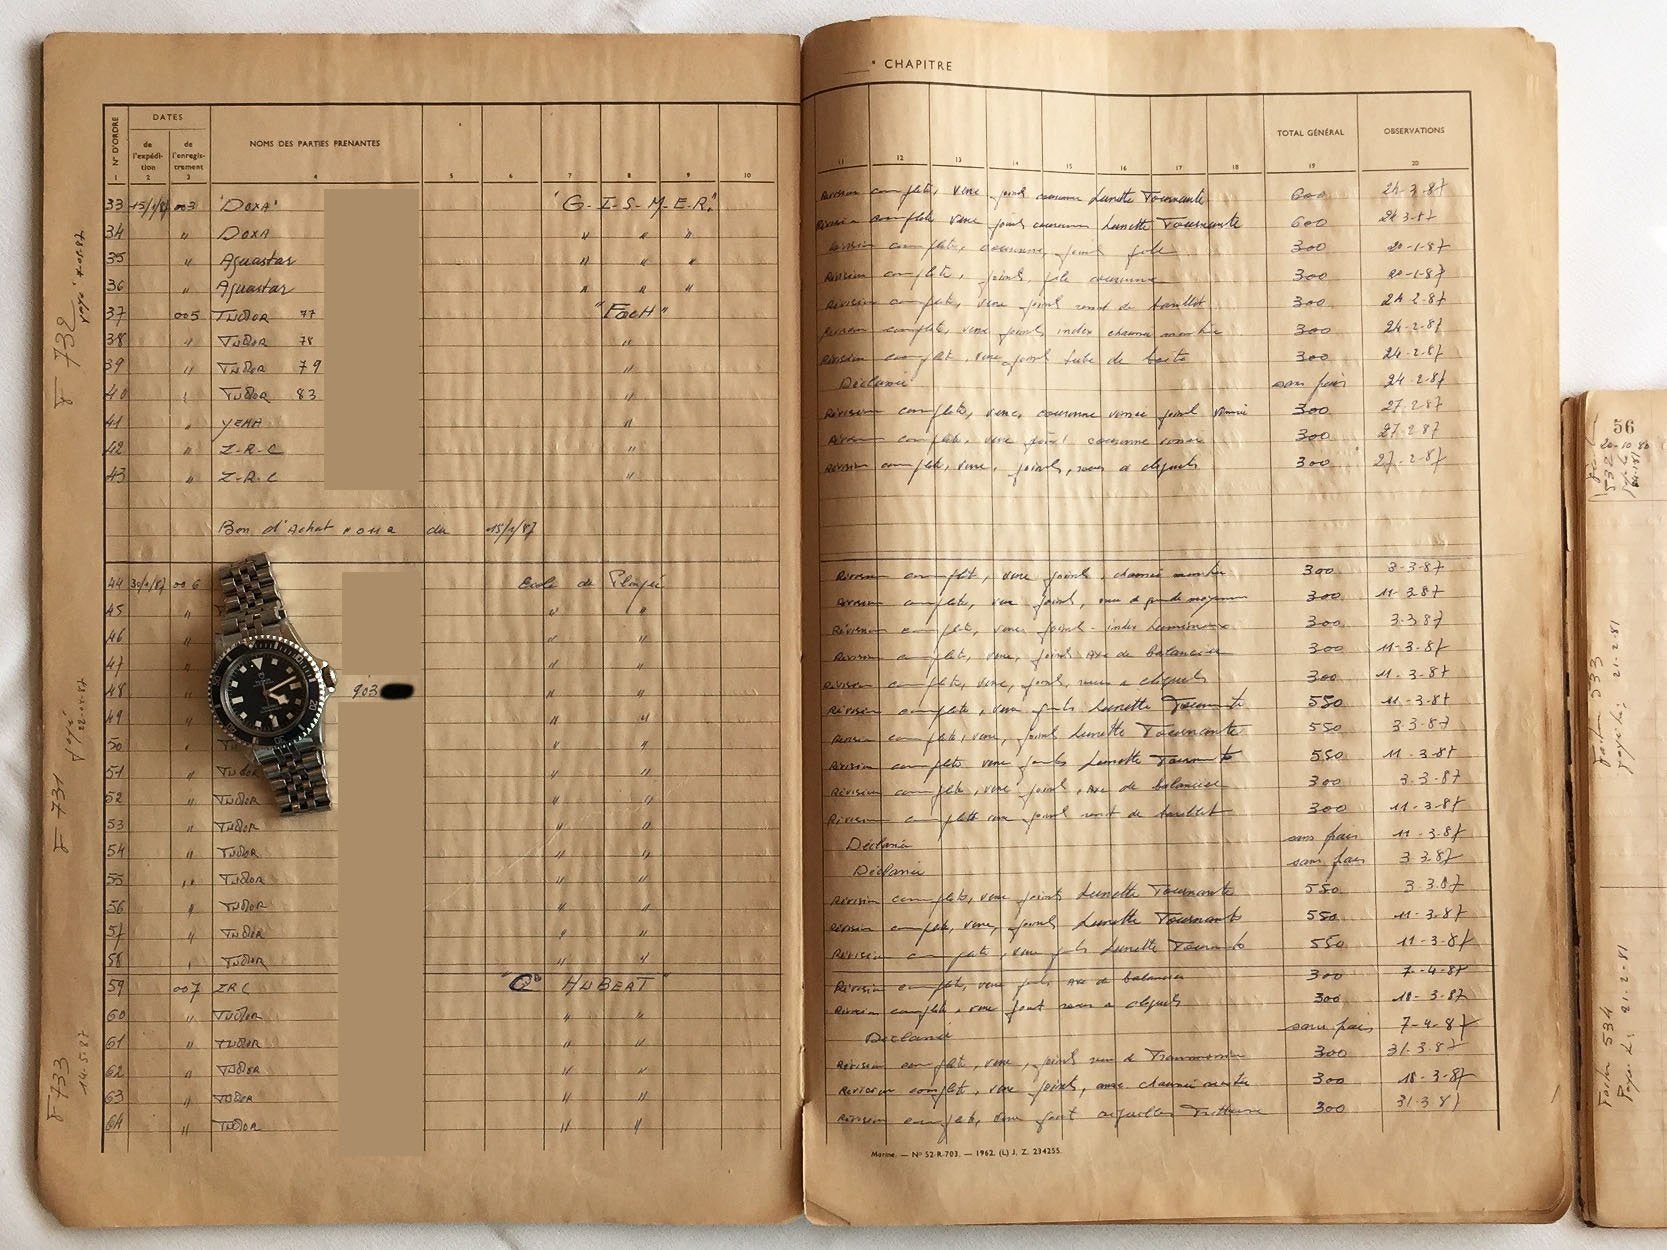 CHAPITRE
N° D'ORDRE DATES NOMS DES PARTIES PRENANTES
de l'expédition de l'enregistrement
1 2 3 4 5 6 7 8 9 10
33 15/1/87 003 "DOXA" "G-I-S-M-E-R."
34 " DOXA " " "
35 " Aquastar " " "
36 " Aquastar " " "
37 005 TUDOR 77 "FOCH"
38 " TUDOR 78 "
39 " TUDOR 79 "
40 " TUDOR 83 "
41 " YEMA "
42 " Z-R-C "
43 " Z.R.C "
Bon d'Achat du 15/1/87
44 30/1/87 006 Ecole de Plongée
45 " " "
46 " " "
47 " " "
48 " 903 " "
49 " " "
50 " " "
51 " TUDOR " "
52 " TUDOR " "
53 " TUDOR " "
54 " TUDOR " "
55 " TUDOR " "
56 " TUDOR " "
57 " TUDOR " "
58 " TUDOR " "
59 007 ZRC HUBERT"
60 " TUDOR " "
61 " TUDOR " "
62 " TUDOR " "
63 " TUDOR " "
64 " TUDOR " "
F 732
payé
F 731
payé 22-04-87
F733
14.5.87
11 12 13 14 15 16 17 18 TOTAL GÉNÉRAL 19 OBSERVATIONS 20
Révision complète, verre joint couronne Lunette Tournante 600 24-3-87
Révision complète verre joint couronne Lunette Tournante 600 24 3-87
Révision complète, couronne, joint pile 300 20-1-87
Révision complète, joint, pile couronne 300 20-1-87
Révision complète, verre joint ressort de barillet 300 24-2-87
Révision complète, verre joint index 300 24-2-87
Révision complète, verre joint tube de boite 300 24-2-87
Déclarée sans frais 24-2-87
Révision complète, verre, couronne joint 300 27-2-87
Révision complète, verre joint couronne 300 27-2-87
Révision complète, verre, joints, roue à cliquets 300 27-2-87
Révision complète, verre joints, 300 3-3-87
Révision complète, verre joint, roue grande moyenne 300 11-3.87
Révision complète, verre joint - index Lumineux 300 3-3 87
Révision complète, verre, joint Axe de balancier 300 11-3-87
Révision complète, verre, joint, roue à cliquets 300 11-3-87
Révision complète, verre joints Lunette Tournante 550 11-3-87
Révision complète, verre, joint Lunette Tournante 550 3-3-87
Révision complète verre joints Lunette Tournante 550 11-3-87
Révision complète, verre joint, Axe de balancier 300 3-3-87
Révision complète verre joint ressort de barillet 300 11-3-87
Déclarée sans frais 11-3-87
Déclarée sans frais 3 3-87
Révision complète, verre joints Lunette Tournante 550 3 3.87
Révision complète, verre, joint Lunette Tournante 550 11-3-87
Révision complète, verre joints Lunette Tournante 550 11-3-87
Révision complète, verre joints Axe de balancier 300 7-4-87
Révision complète, verre joint roue à cliquets 300 18-3-87
Déclarée sans frais 7-4-87
Révision complète, verre, joint roue de Transmission 300 31-3-87
Révision complète, verre joints, 300 18-3-87
Révision complète, verre joint aiguilles Trotteuse 300 31-3 87
Marine. — N° 52-R-703. — 1962. (L) J. Z. 234255.
56
532
Factur 533
payé le: 21-2-81
Factur 534
Payé le: 21-2-81